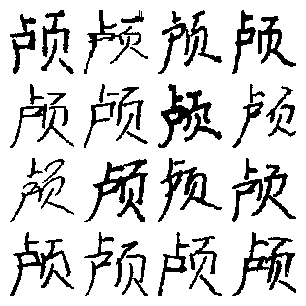 颅颅颅颅
颅颅颅颅
颅颅颅颅
颅颅颅颅